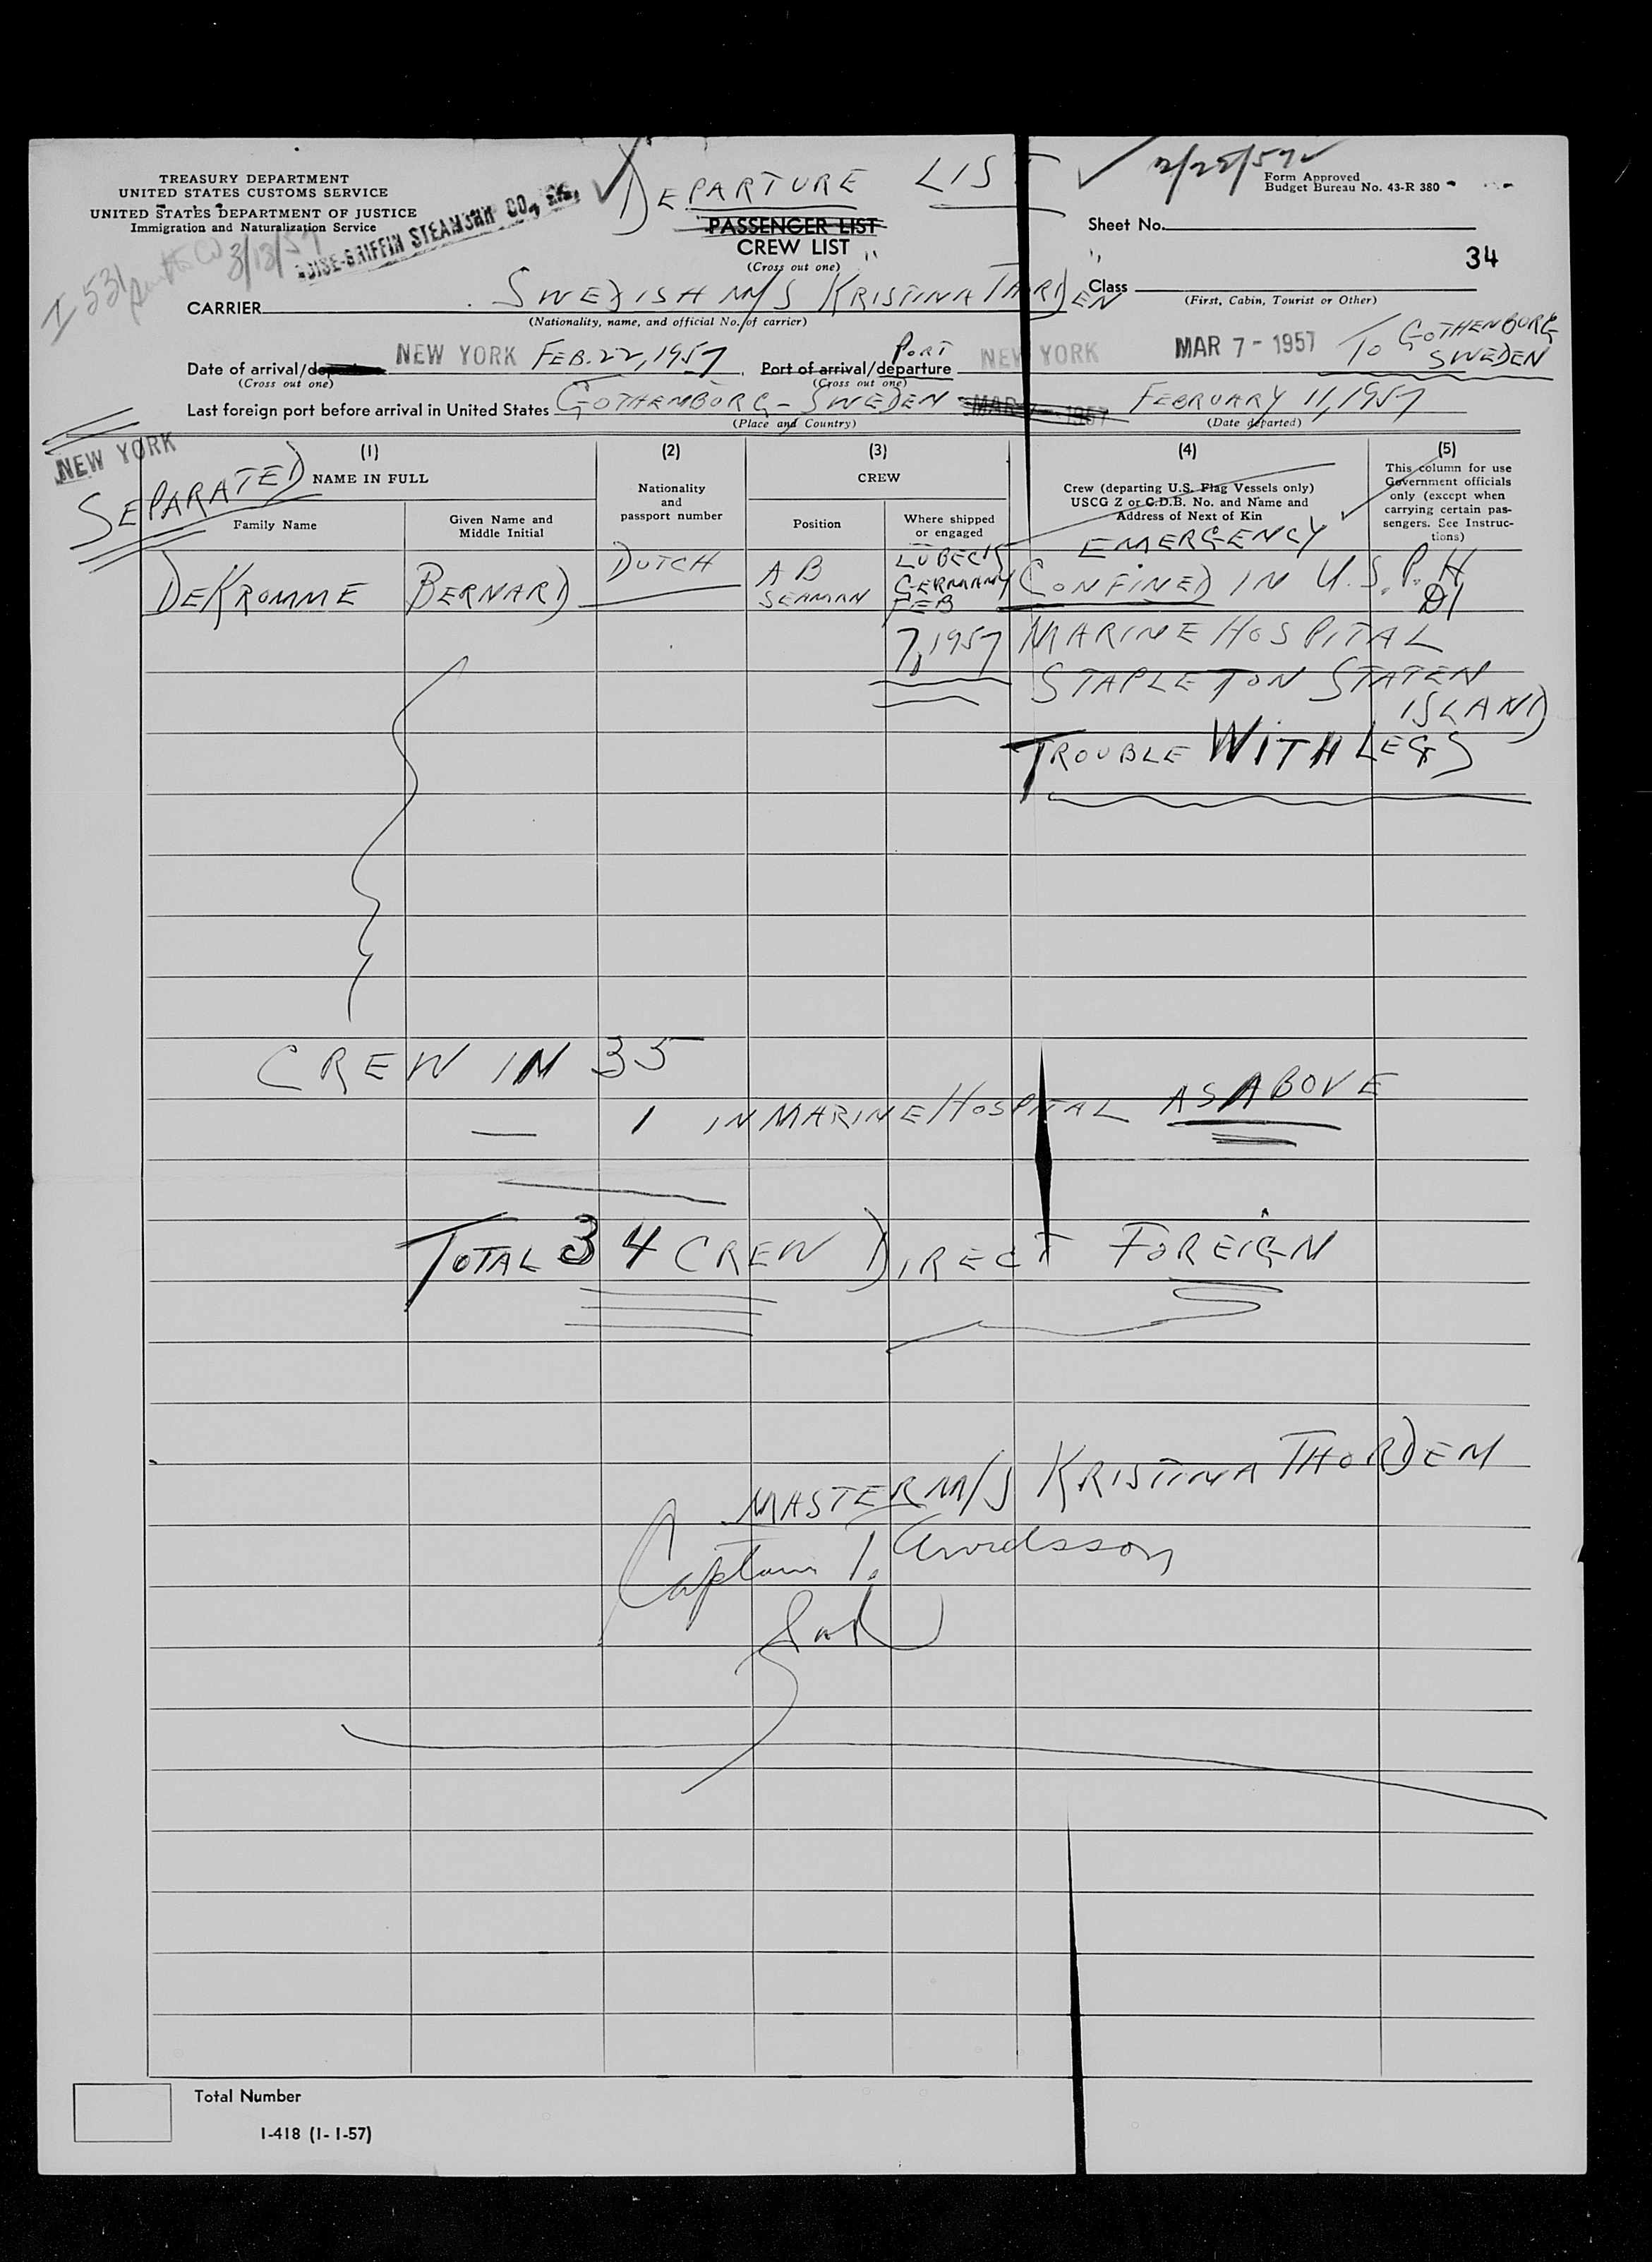 TREASURY DEPARTMENT
UNITED STATES CUSTOMS SERVICE
UNITED STATES DEPARTMENT OF JUSTICE
Immigration and Naturalization Service
-GRIFFIN STEAMSHIP CO.,
I 531
3/13/57
DEPARTURE LIST
2/22/57
Form Approved
Budget Bureau No. 43-R 380
PASSENGER LIST
CREW LIST
(Cross out one)
Sheet No.
34
CARRIER SWEDISH M/S KRISTINA THORDEN
(Nationality, name, and official No. of carrier)
Class
(First, Cabin, Tourist or Other)
Date of arrival/ NEW YORK FEB. 22, 1957 Port of arrival/departure PORT NEW YORK MAR 7 - 1957 TO GOTHENBORG SWEDEN
(Cross out one)
(Cross out one)
Last foreign port before arrival in United States GOTHEMBORG - SWEDEN MAR 7 - 1957 FEBRUARY 11, 1957
(Place and Country)
(Date departed)
NEW YORK
SEPARATED
(1)
NAME IN FULL
Family Name
Given Name and
Middle Initial
(2)
Nationality
and
passport number
(3)
CREW
Position
Where shipped
or engaged
(4)
Crew (departing U.S. Flag Vessels only)
USCG Z or C.D.B. No. and Name and
Address of Next of Kin
EMERGENCY
(5)
This column for use
Government officials
only (except when
carrying certain pas-
sengers. See Instruc-
tions)
DEKROMME BERNARD DUTCH AB SEAMAN LÜBECK GERMANY FEB 7, 1957 CONFINED IN U.S.P.H
D1
MARINE HOSPITAL
STAPLETON STATEN
ISLAND
TROUBLE WITH LEGS
CREW IN 35
— 1 IN MARINE HOSPITAL AS ABOVE
TOTAL 34 CREW DIRECT FOREIGN
MASTER M/S KRISTINA THORDEN
Captain I. Arvidsson
Total Number
I-418 (1-1-57)